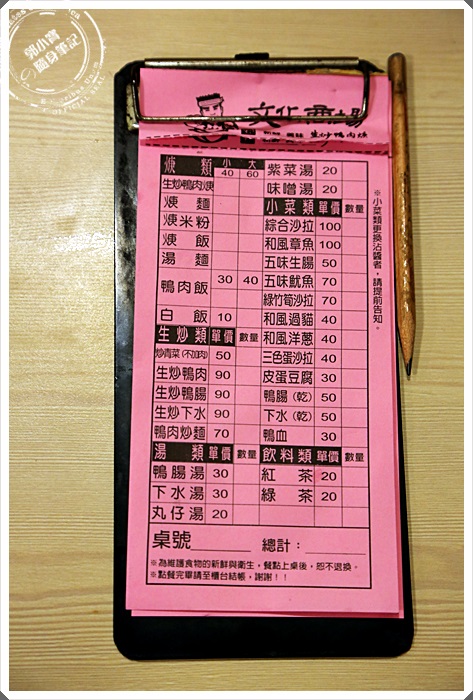 郭小寶
隨身筆記
文化商場
生炒鴨肉焿
焿類 小 40 大 60
生炒鴨肉焿
焿麵
焿米粉
焿飯
湯麵
鴨肉飯 30 40
白飯 10
生炒類 單價 數量
炒青菜(不加肉) 50
生炒鴨肉 90
生炒鴨腸 90
生炒下水 90
鴨肉炒麵 70
湯類 單價 數量
鴨腸湯 30
下水湯 30
丸仔湯 20
紫菜湯 20
味噌湯 20
小菜類 單價 數量
綜合沙拉 100
和風章魚 100
五味生腸 50
五味魷魚 70
綠竹筍沙拉 70
和風過貓 40
和風洋蔥 40
三色蛋沙拉 40
皮蛋豆腐 30
鴨腸(乾) 50
下水(乾) 50
鴨血 30
飲料類 單價 數量
紅茶 20
綠茶 20
※小菜類更換沾醬者,請提前告知。
桌號______ 總計:______
※為維護食物的新鮮與衛生,餐點上桌後,恕不退換。
※點餐完畢請至櫃台結帳,謝謝!!